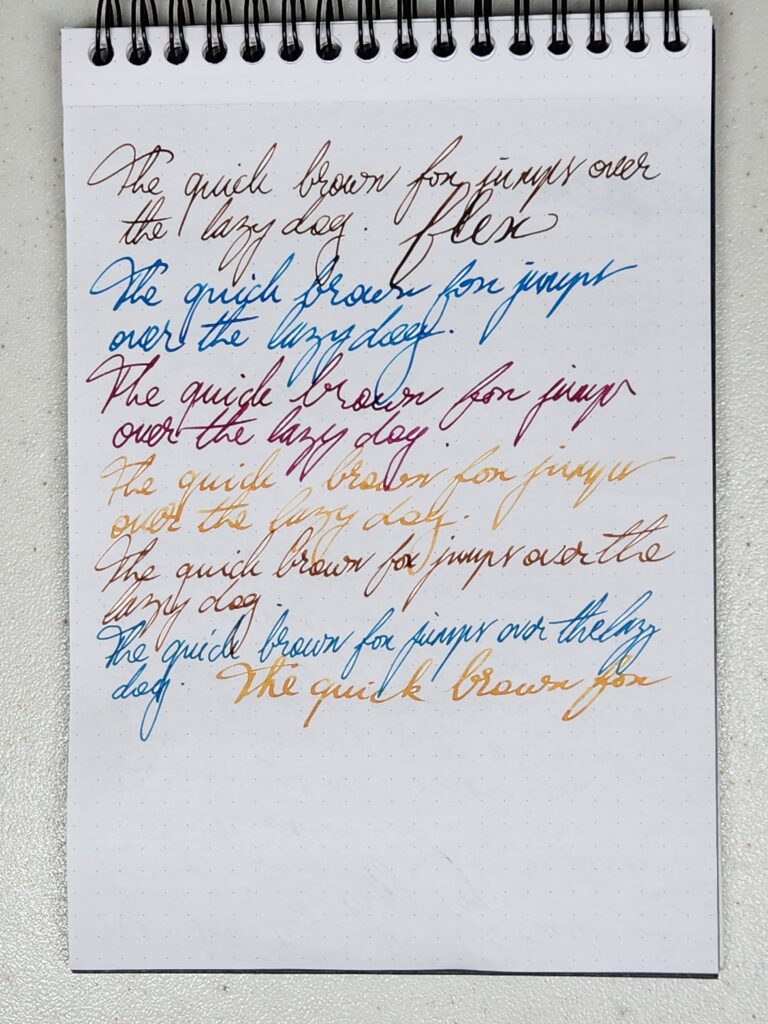 The quick brown fox jumps over
the lazy dog. flex
The quick brown fox jumps
over the lazy dog.
The quick brown fox jumps
over the lazy dog.
The quick brown fox jumps
over the lazy dog.
The quick brown fox jumps over the
lazy dog.
The quick brown fox jumps over the lazy
dog. The quick brown fox